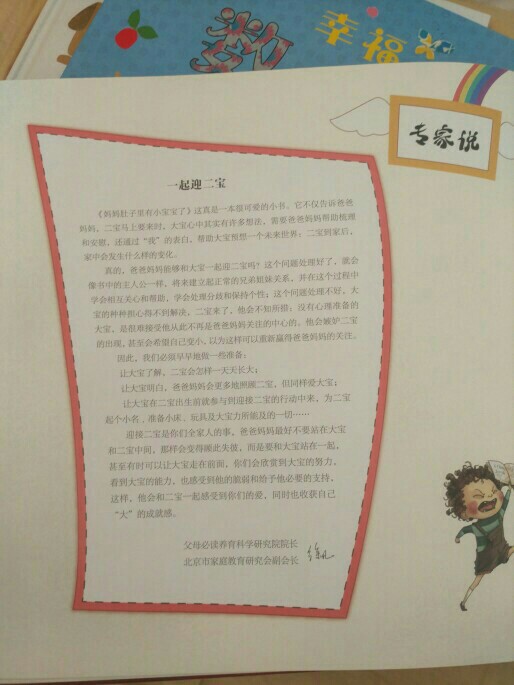 幸福
专家说
一起迎二宝
《妈妈肚子里有小宝宝了》这真是一本很可爱的小书。它不仅告诉爸爸
妈妈，二宝马上要来时，大宝心中其实有许多想法，需要爸爸妈妈帮助梳理
和安慰，还通过“我”的表白，帮助大宝预想一个未来世界：二宝到家后，
家中会发生什么样的变化。
真的，爸爸妈妈能够和大宝一起迎二宝吗？这个问题处理好了，就会
像书中的主人公一样，将来建立起正常的兄弟姐妹关系，并在这个过程中
学会相互关心和帮助，学会处理分歧和保持个性；这个问题处理不好，大
宝的种种担心得不到解决，二宝来了，他会不知所措；没有心理准备的
大宝，是很难接受他从此不再是爸爸妈妈关注的中心的。他会嫉妒二宝
的出现，甚至会希望自己变小，以为这样可以重新赢得爸爸妈妈的关注。
因此，我们必须早早地做一些准备：
让大宝了解，二宝会怎样一天天长大；
让大宝明白，爸爸妈妈会更多地照顾二宝，但同样爱大宝；
让大宝在二宝出生前就参与到迎接二宝的行动中来，为二宝
起个小名、准备小床、玩具及大宝力所能及的一切……
迎接二宝是你们全家人的事，爸爸妈妈最好不要站在大宝
和二宝中间，那样会变得顾此失彼，而是要和大宝站在一起，
甚至有时可以让大宝走在前面，你们会欣赏到大宝的努力，
看到大宝的能力，也感受到他的脆弱和给予他必要的支持，
这样，他会和二宝一起感受到你们的爱，同时也收获自己
“大”的成就感。
父母必读养育科学研究院院长
北京市家庭教育研究会副会长